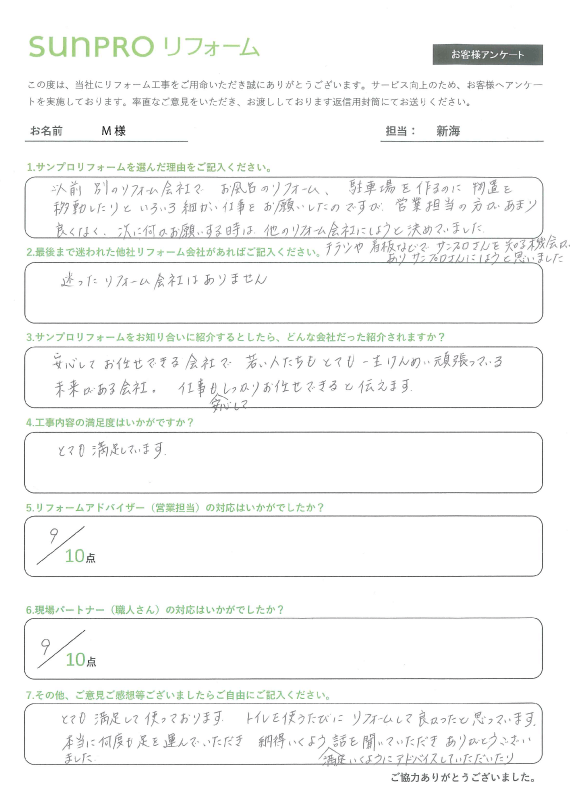 SUNPRO リフォーム
お客様アンケート
この度は、当社にリフォーム工事をご用命いただき誠にありがとうございます。サービス向上のため、お客様へアンケートを実施しております。率直なご意見をいただき、お渡ししております返信用封筒にてお送りください。
お名前 M 様 担当： 新海
1.サンプロリフォームを選んだ理由をご記入ください。
以前 別のリフォーム会社で お風呂のリフォーム、 駐車場を作るのに 物置を
移動したりと いろいろ細かい仕事を お願いしたのですが 営業担当の方が あまり
良くなく、次に何かお願いする時は 他のリフォーム会社にしようと 決めていました
チラシや 看板などで サンプロさんを 知る機会が
あり サンプロさんにしようと思いました
2.最後まで迷われた他社リフォーム会社があればご記入ください。
迷った リフォーム会社は ありません
3.サンプロリフォームをお知り合いに紹介するとしたら、どんな会社だった紹介されますか？
安心して お任せできる 会社で 若い人たちも とても 一生けんめい 頑張っている
未来がある会社。 仕事もしっかりお任せできると 伝えます
安心して
4.工事内容の満足度はいかがですか？
とても 満足しています
5.リフォームアドバイザー（営業担当）の対応はいかがでしたか？
9/10点
6.現場パートナー（職人さん）の対応はいかがでしたか？
9/10点
7.その他、ご意見ご感想等ございましたらご自由にご記入ください。
とても 満足して 使っております トイレを使うたびに リフォームして 良かったと 思っています
本当に何度も足を運んでいただき 納得いくよう 話を聞いていただき ありがとうござい
ました
満足いくようにアドバイスしていただいたり
ご協力ありがとうございました。